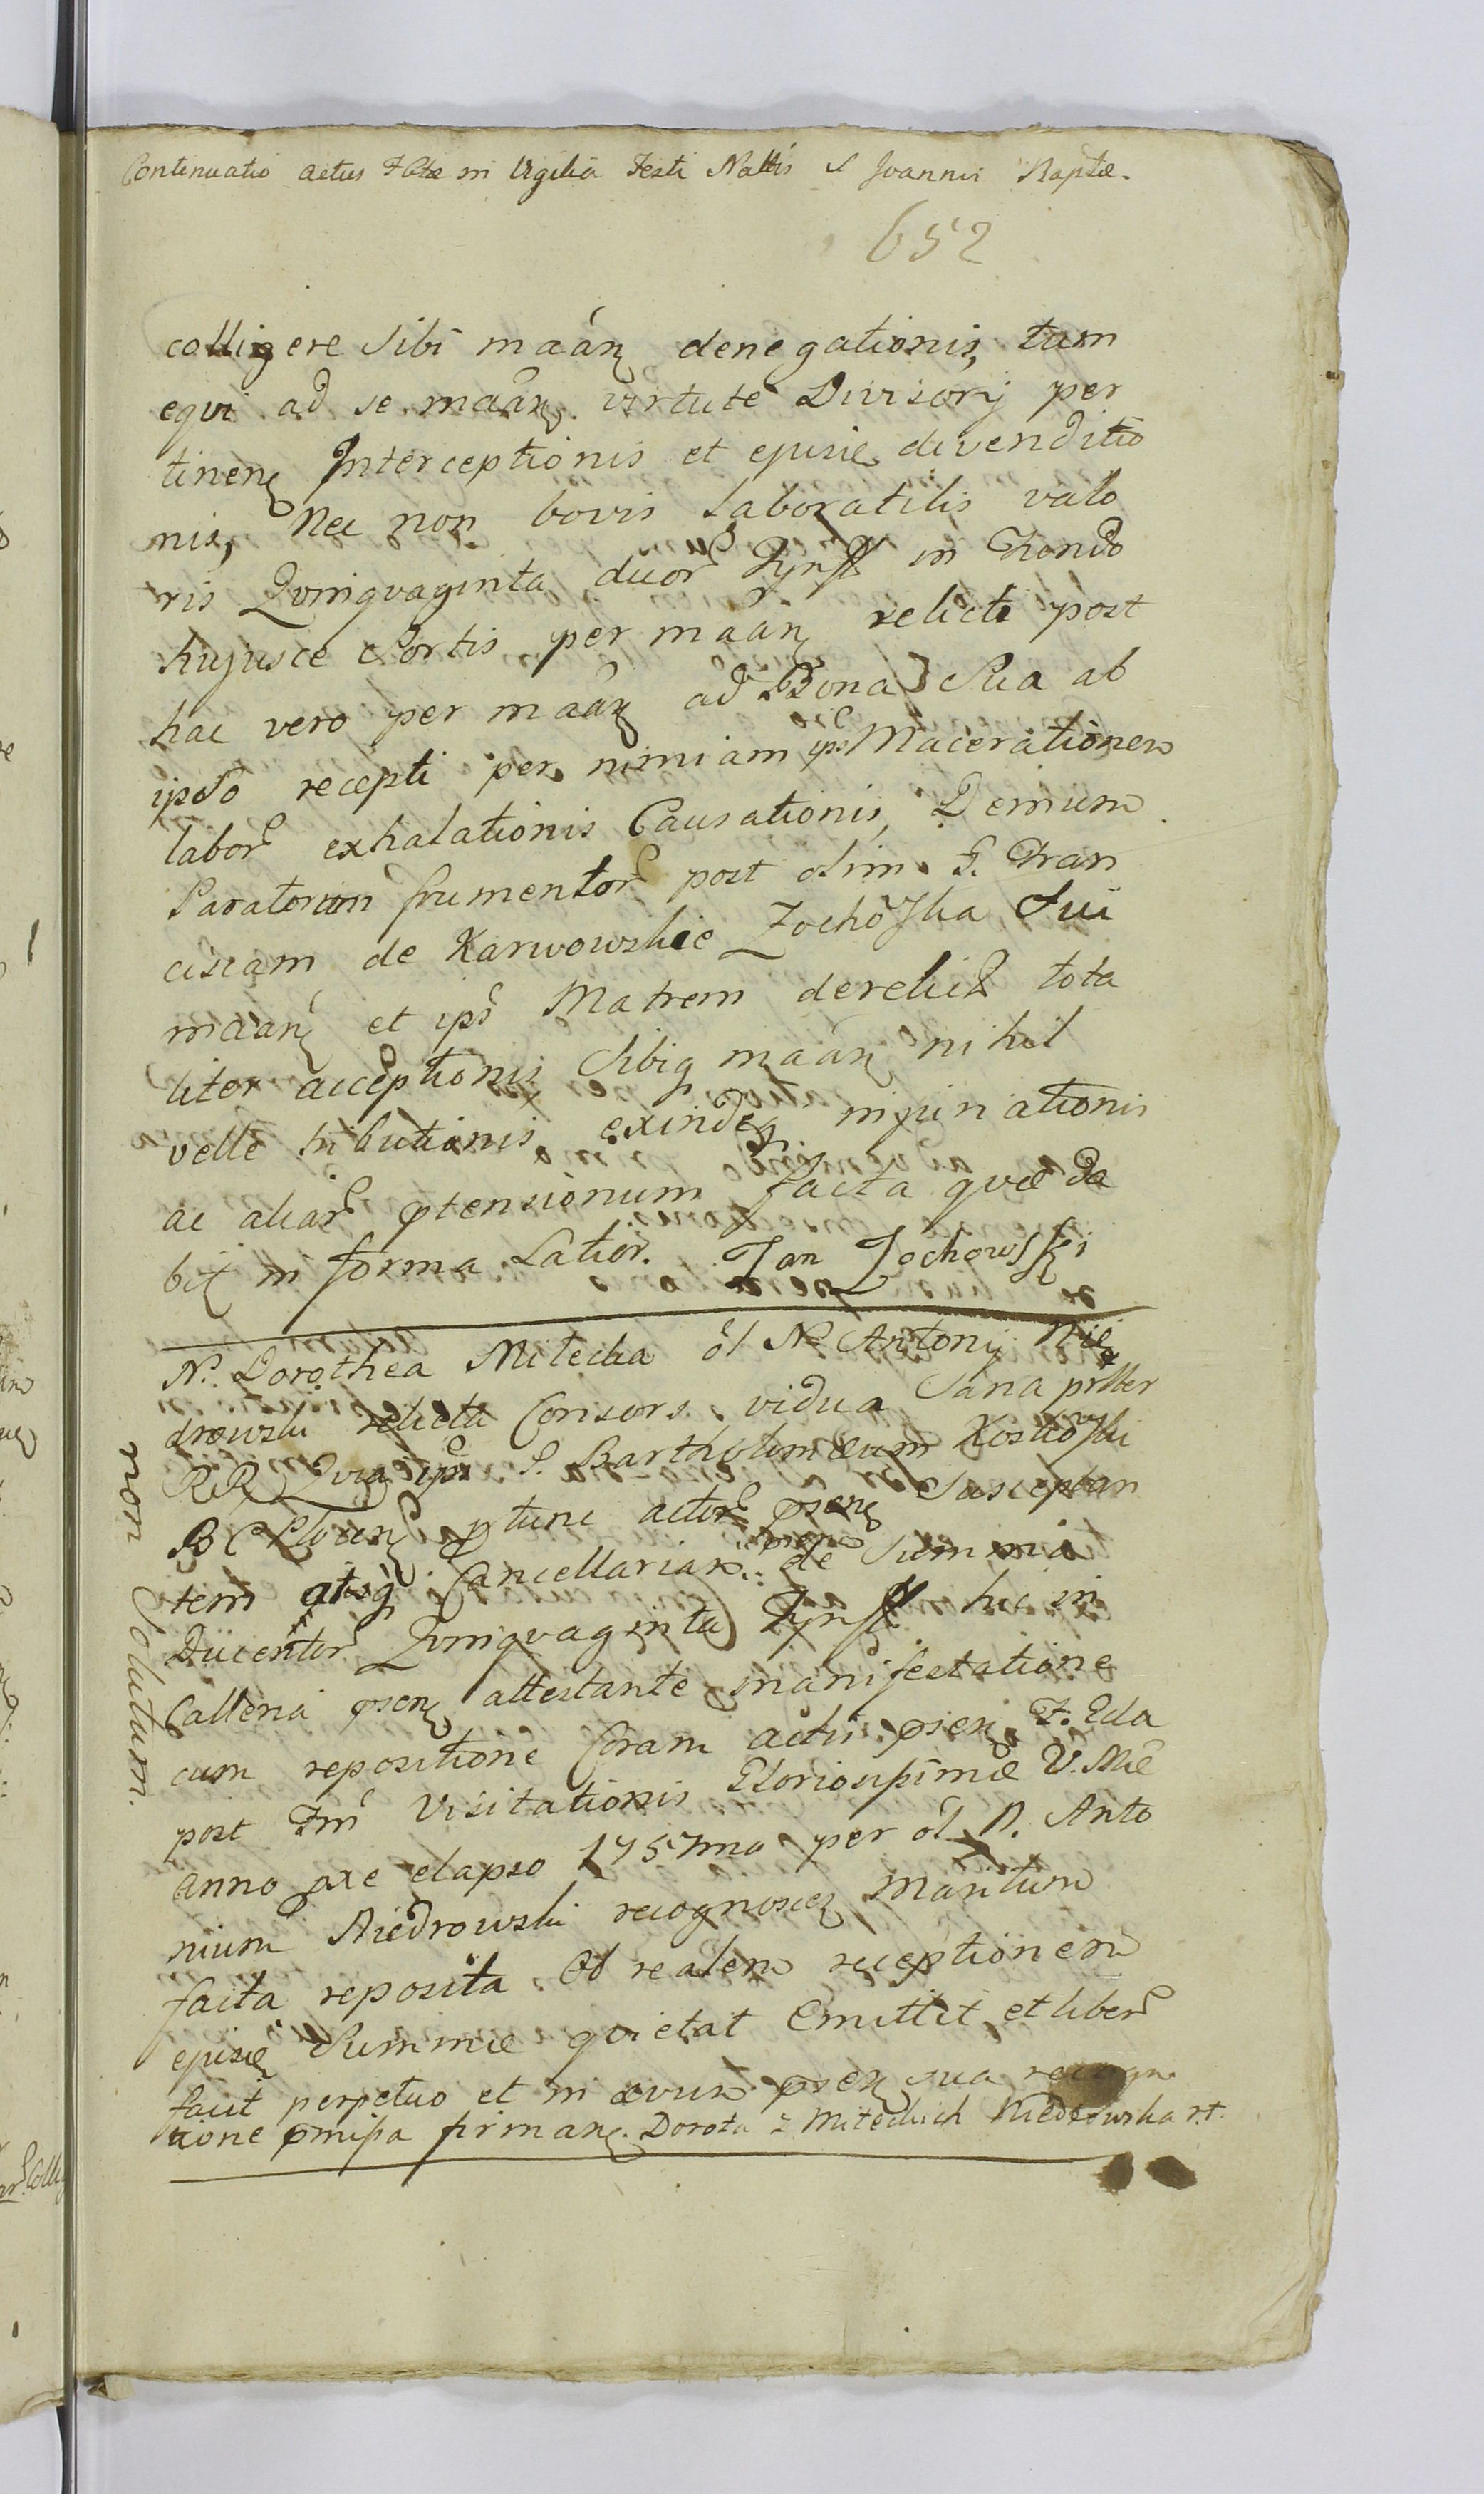 Continuatio actus Fẽæ in Vigilia Festi Nattis S Joannis Baptæ.
652
colligere Sibi maãn denegationis, tam
equi ad se maãn virtute Divisorÿ per
tinen Interceptionis et ejusie divenditio
nis, Nec non bovis Laboratilis valo
ris Quinquaginta duor Tynff in Fundo
hujusce Sortis per maãn relicti post
hac vero per maãn ad Bona Sua ab
ipso recepti per nimiam ips Macerationem
labor exhalationis Causationis, Demum
Satorum frumentor post olim F. Fran
ciscam de Karwowskie Zochoska Sui
maãn et ips Matrem derelict tota
liter acceptionis Sibiq maãn nihil
velle tributionis exindeq injuriationis
ac aliar ptensionum facta quæ da
bit in forma Latior. Jan Zochowski
N. Dorothea Milecka ol N. Antonÿ Nie
drowski relicta Consors vidua Sana prtter
RR Quia ips P. Bartholomæum Kostroski
B C ptunc actor psen Susceptan
tem atq Cancellarian psen de Summa
Ducentor Quinquaginta Tynff hic in
Callena psen attestante manifestatione
cum repositione Coram actis psen F. 2da
post Fm Visitationis Gloriosissimæ V. Mæ
anno axe elapso 1757mo per ol N. Anto
nium Niedrowski recognoscen Maritum
facta reposita Ob realem receptionem
ejusie Summæ quietat Emittit et liber
facit perpetuo et in ævum psen sua recogn
tione pmissa firman. Dorota z Mileckich Niedrowska r.t.
non Solutum.